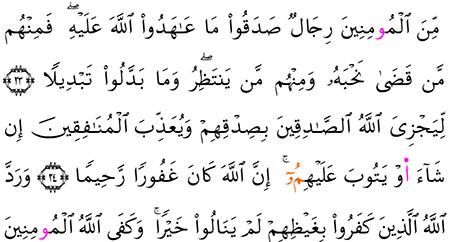 مِّنَ ٱلْمُومِنِينَ رِجَالٌ صَدَقُوا۟ مَا عَـٰهَدُوا۟ ٱللَّهَ عَلَيْهِ ۖ فَمِنْهُم
مَّن قَضَىٰ نَحْبَهُۥ وَمِنْهُم مَّن يَنتَظِرُ ۖ وَمَا بَدَّلُوا۟ تَبْدِيلًا ﴿٢٣﴾
لِّيَجْزِىَ ٱللَّهُ ٱلصَّـٰدِقِينَ بِصِدْقِهِمْ وَيُعَذِّبَ ٱلْمُنَـٰفِقِينَ إِن
شَآءَ ا۬وْ يَتُوبَ عَلَيْهِمُۥٓ ۚ إِنَّ ٱللَّهَ كَانَ غَفُورًا رَّحِيمًا ﴿٢٤﴾ وَرَدَّ
ٱللَّهُ ٱلَّذِينَ كَفَرُوا۟ بِغَيْظِهِمْ لَمْ يَنَالُوا۟ خَيْرًا ۚ وَكَفَى ٱللَّهُ ٱلْمُومِنِينَ